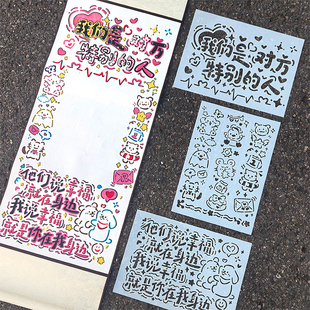 我们是对方
特别的人
他们说幸福
就在身边
我说幸福
就是你在我身边
我们是对方
特别的人
他们说幸福
就在身边
我说幸福
就是你在我身边